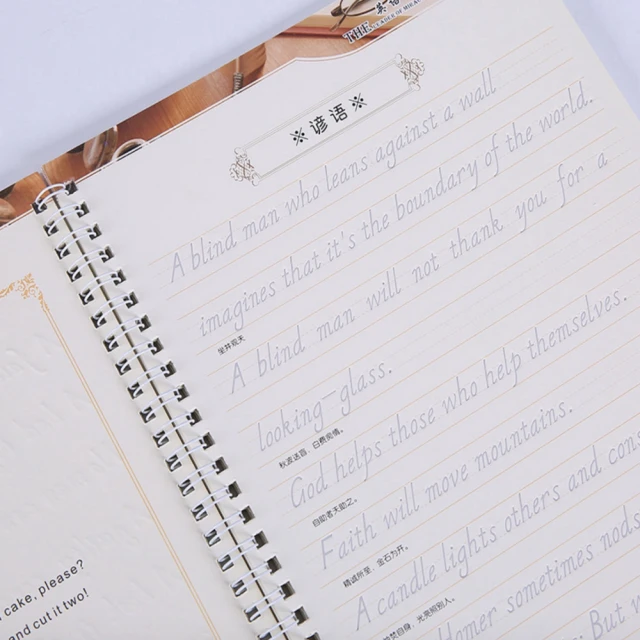 ※谚语※
A blind man who leans against a wall
imagines that it's the boundary of the world.
坐井观天
A blind man will not thank you for a
looking-glass.
秋波送盲，白费痴情。
God helps those who help themselves.
自助者天助之。
Faith will move mountains.
精诚所至，金石为开。
A candle lights others and
焚自身，光亮照别人。
sometimes nods
But
cake, please?
and cut it two!